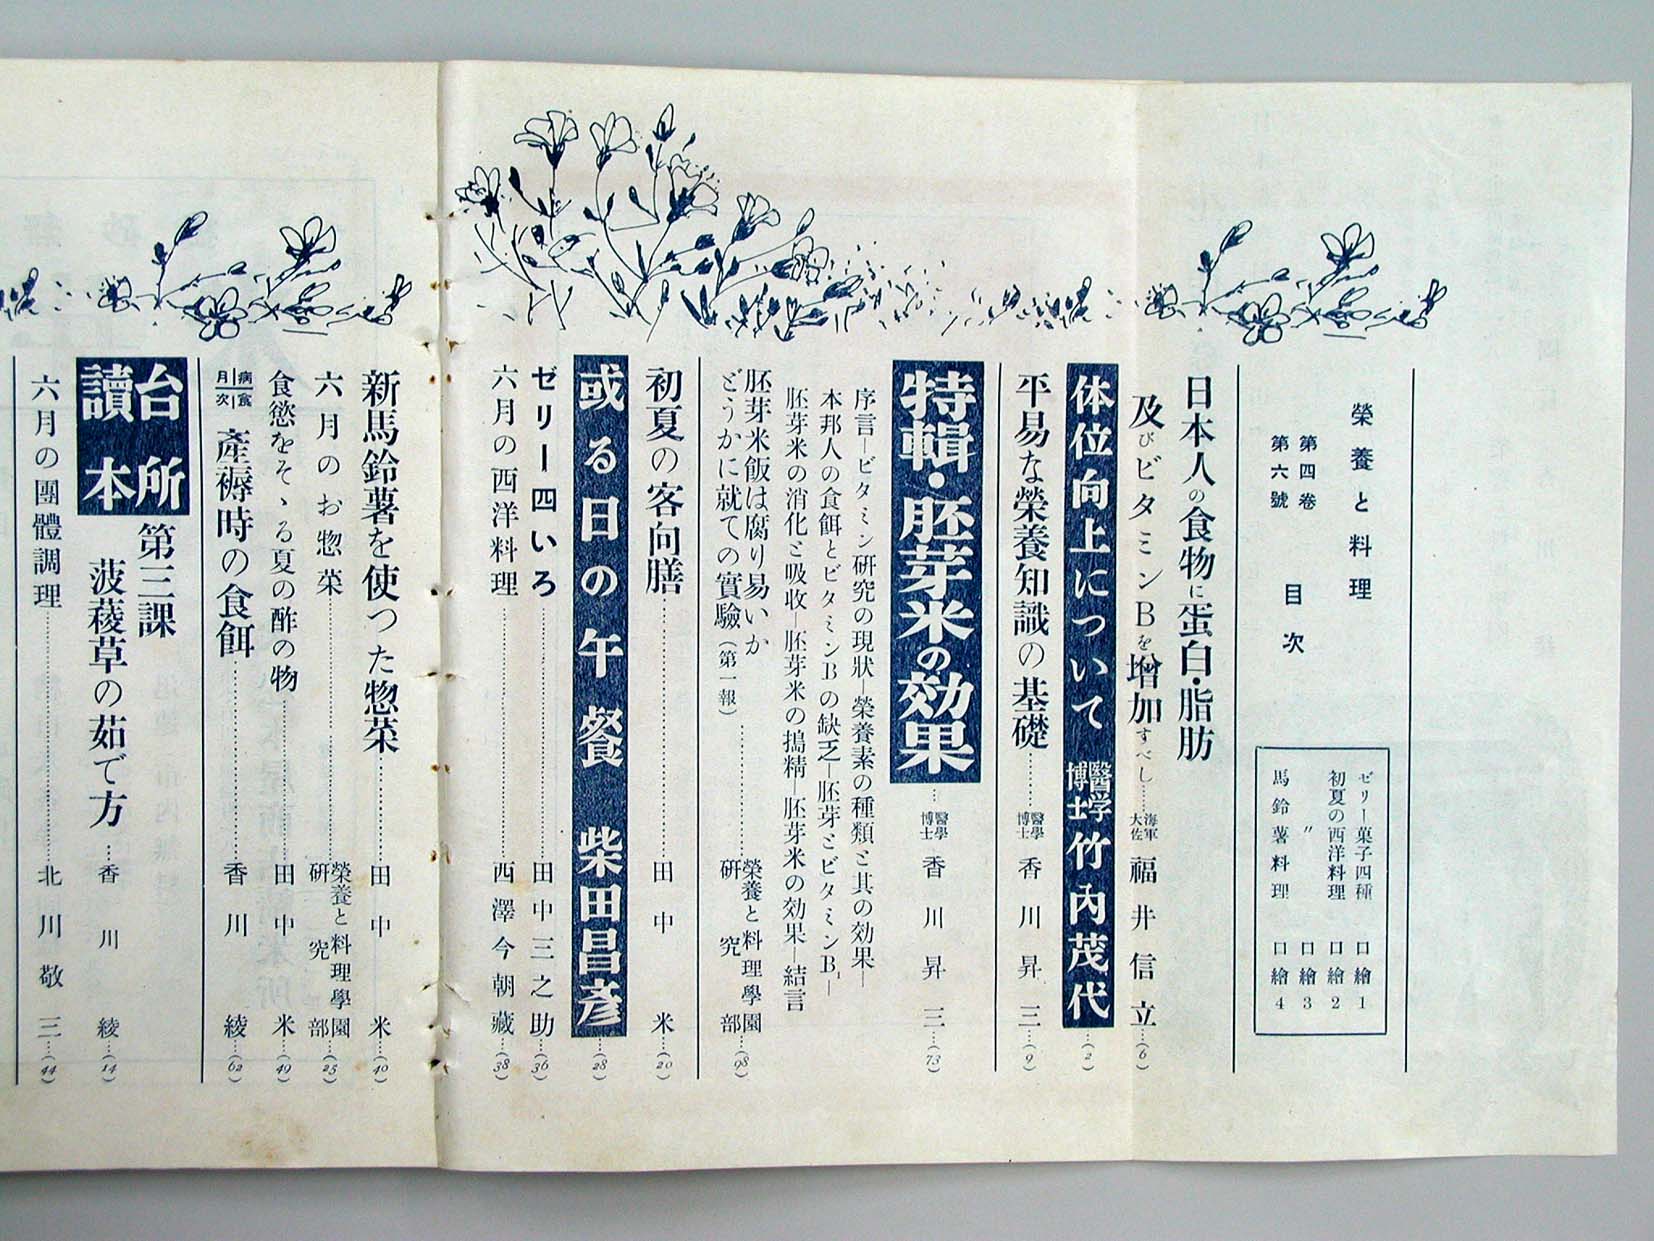 榮養と料理
第四卷
第六號
目次
ゼリー菓子四種　口繪1
初夏の西洋料理　口繪2
〃　口繪3
馬鈴薯料理　口繪4
日本人の食物に蛋白・脂肪
及びビタミンBを增加すべし……海軍大佐　福井信立…(6)
体位向上について　醫学博士　竹內茂代…(2)
平易な榮養知識の基礎……醫學博士　香川昇三…(9)
特輯・胚芽米の効果…醫學博士　香川昇三…(73)
序言―ビタミン硏究の現狀―榮養素の種類と其の効果―
本邦人の食餌とビタミンBの缺乏―胚芽とビタミンB₁―
胚芽米の消化と吸收―胚芽米の搗精―胚芽米の効果―結言
胚芽米飯は腐り易いか
どうかに就ての實驗（第一報）……榮養と料理學園硏究部…(98)
初夏の客向膳……田中米…(20)
或る日の午餐　柴田昌彥…(28)
ゼリー四いろ……田中三之助…(36)
六月の西洋料理……西澤今朝藏…(38)
新馬鈴薯を使つた惣菜……田中米…(40)
六月のお惣菜……榮養と料理學園硏究部…(25)
食慾をそゝる夏の酢の物……田中米…(49)
病食月次　產褥時の食餌……香川綾…(62)
台所讀本　第三課
菠薐草の茹で方…香川綾…(14)
六月の團體調理……北川敬三…(44)